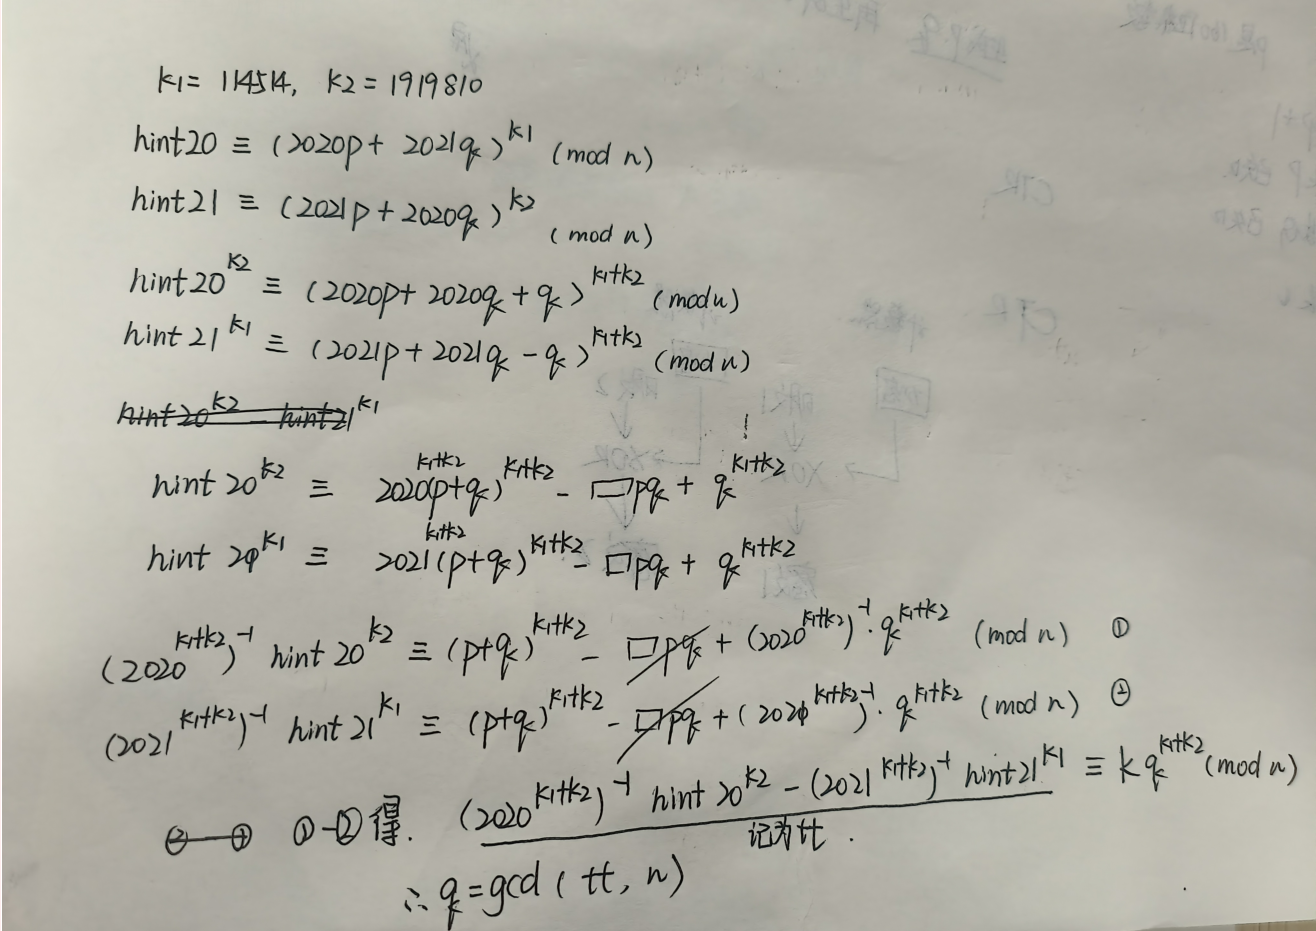 k1 = 114514, k2 = 1919810
hint20 ≡ (2020p + 2021q)^k1 (mod n)
hint21 ≡ (2021p + 2020q)^k2 (mod n)
hint20^k2 ≡ (2020p + 2020q + q)^k1+k2 (mod n)
hint21^k1 ≡ (2021p + 2021q - q)^k1+k2 (mod n)
hint20^k2 - hint21^k1
hint20^k2 ≡ 2020^k1+k2 (p+q)^k1+k2 - □pq + q^k1+k2
hint21^k1 ≡ 2021^k1+k2 (p+q)^k1+k2 - □pq + q^k1+k2
(2020^k1+k2)^-1 hint20^k2 ≡ (p+q)^k1+k2 - □pq + (2020^k1+k2)^-1 · q^k1+k2 (mod n) ①
(2021^k1+k2)^-1 hint21^k1 ≡ (p+q)^k1+k2 - □pq + (2021^k1+k2)^-1 · q^k1+k2 (mod n) ②
①-②得. (2020^k1+k2)^-1 hint20^k2 - (2021^k1+k2)^-1 hint21^k1 ≡ kq^k1+k2 (mod n)
记为tt.
∴ q = gcd(tt, n)